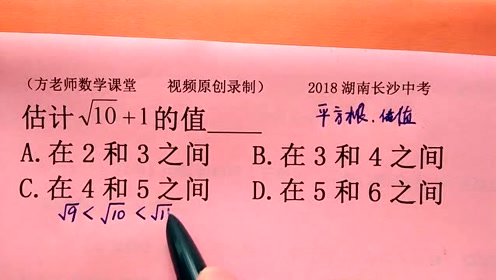 （方老师数学课堂 视频原创录制） 2018 湖南长沙中考
估计√10+1的值____ 平方根.估值
A.在 2 和 3 之间 B.在 3 和 4 之间
C.在 4 和 5 之间 D.在 5 和 6 之间
√9<√10<√1